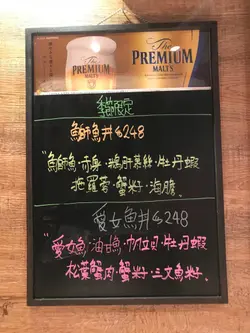 The
PREMIUM
MALT'S
The
PREMIUM
MALT'S
季節限定
鰤師魚丼 $248
"鰤師魚、赤身、鵝肝慕絲、牡丹蝦
蟹籽、海膽
愛女魚丼 $248
"愛女魚、油魚、帆立貝、牡丹蝦
松葉蟹肉、蟹籽、三文魚籽